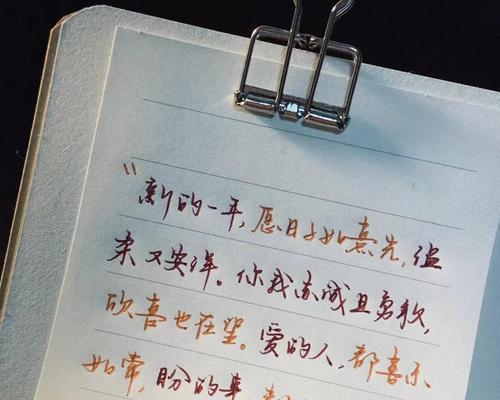 “新的一年,愿日子如熹光,温
柔又安详。你我赤诚且勇敢,
欣喜也在望。爱的人,都喜乐
如常,盼的事,